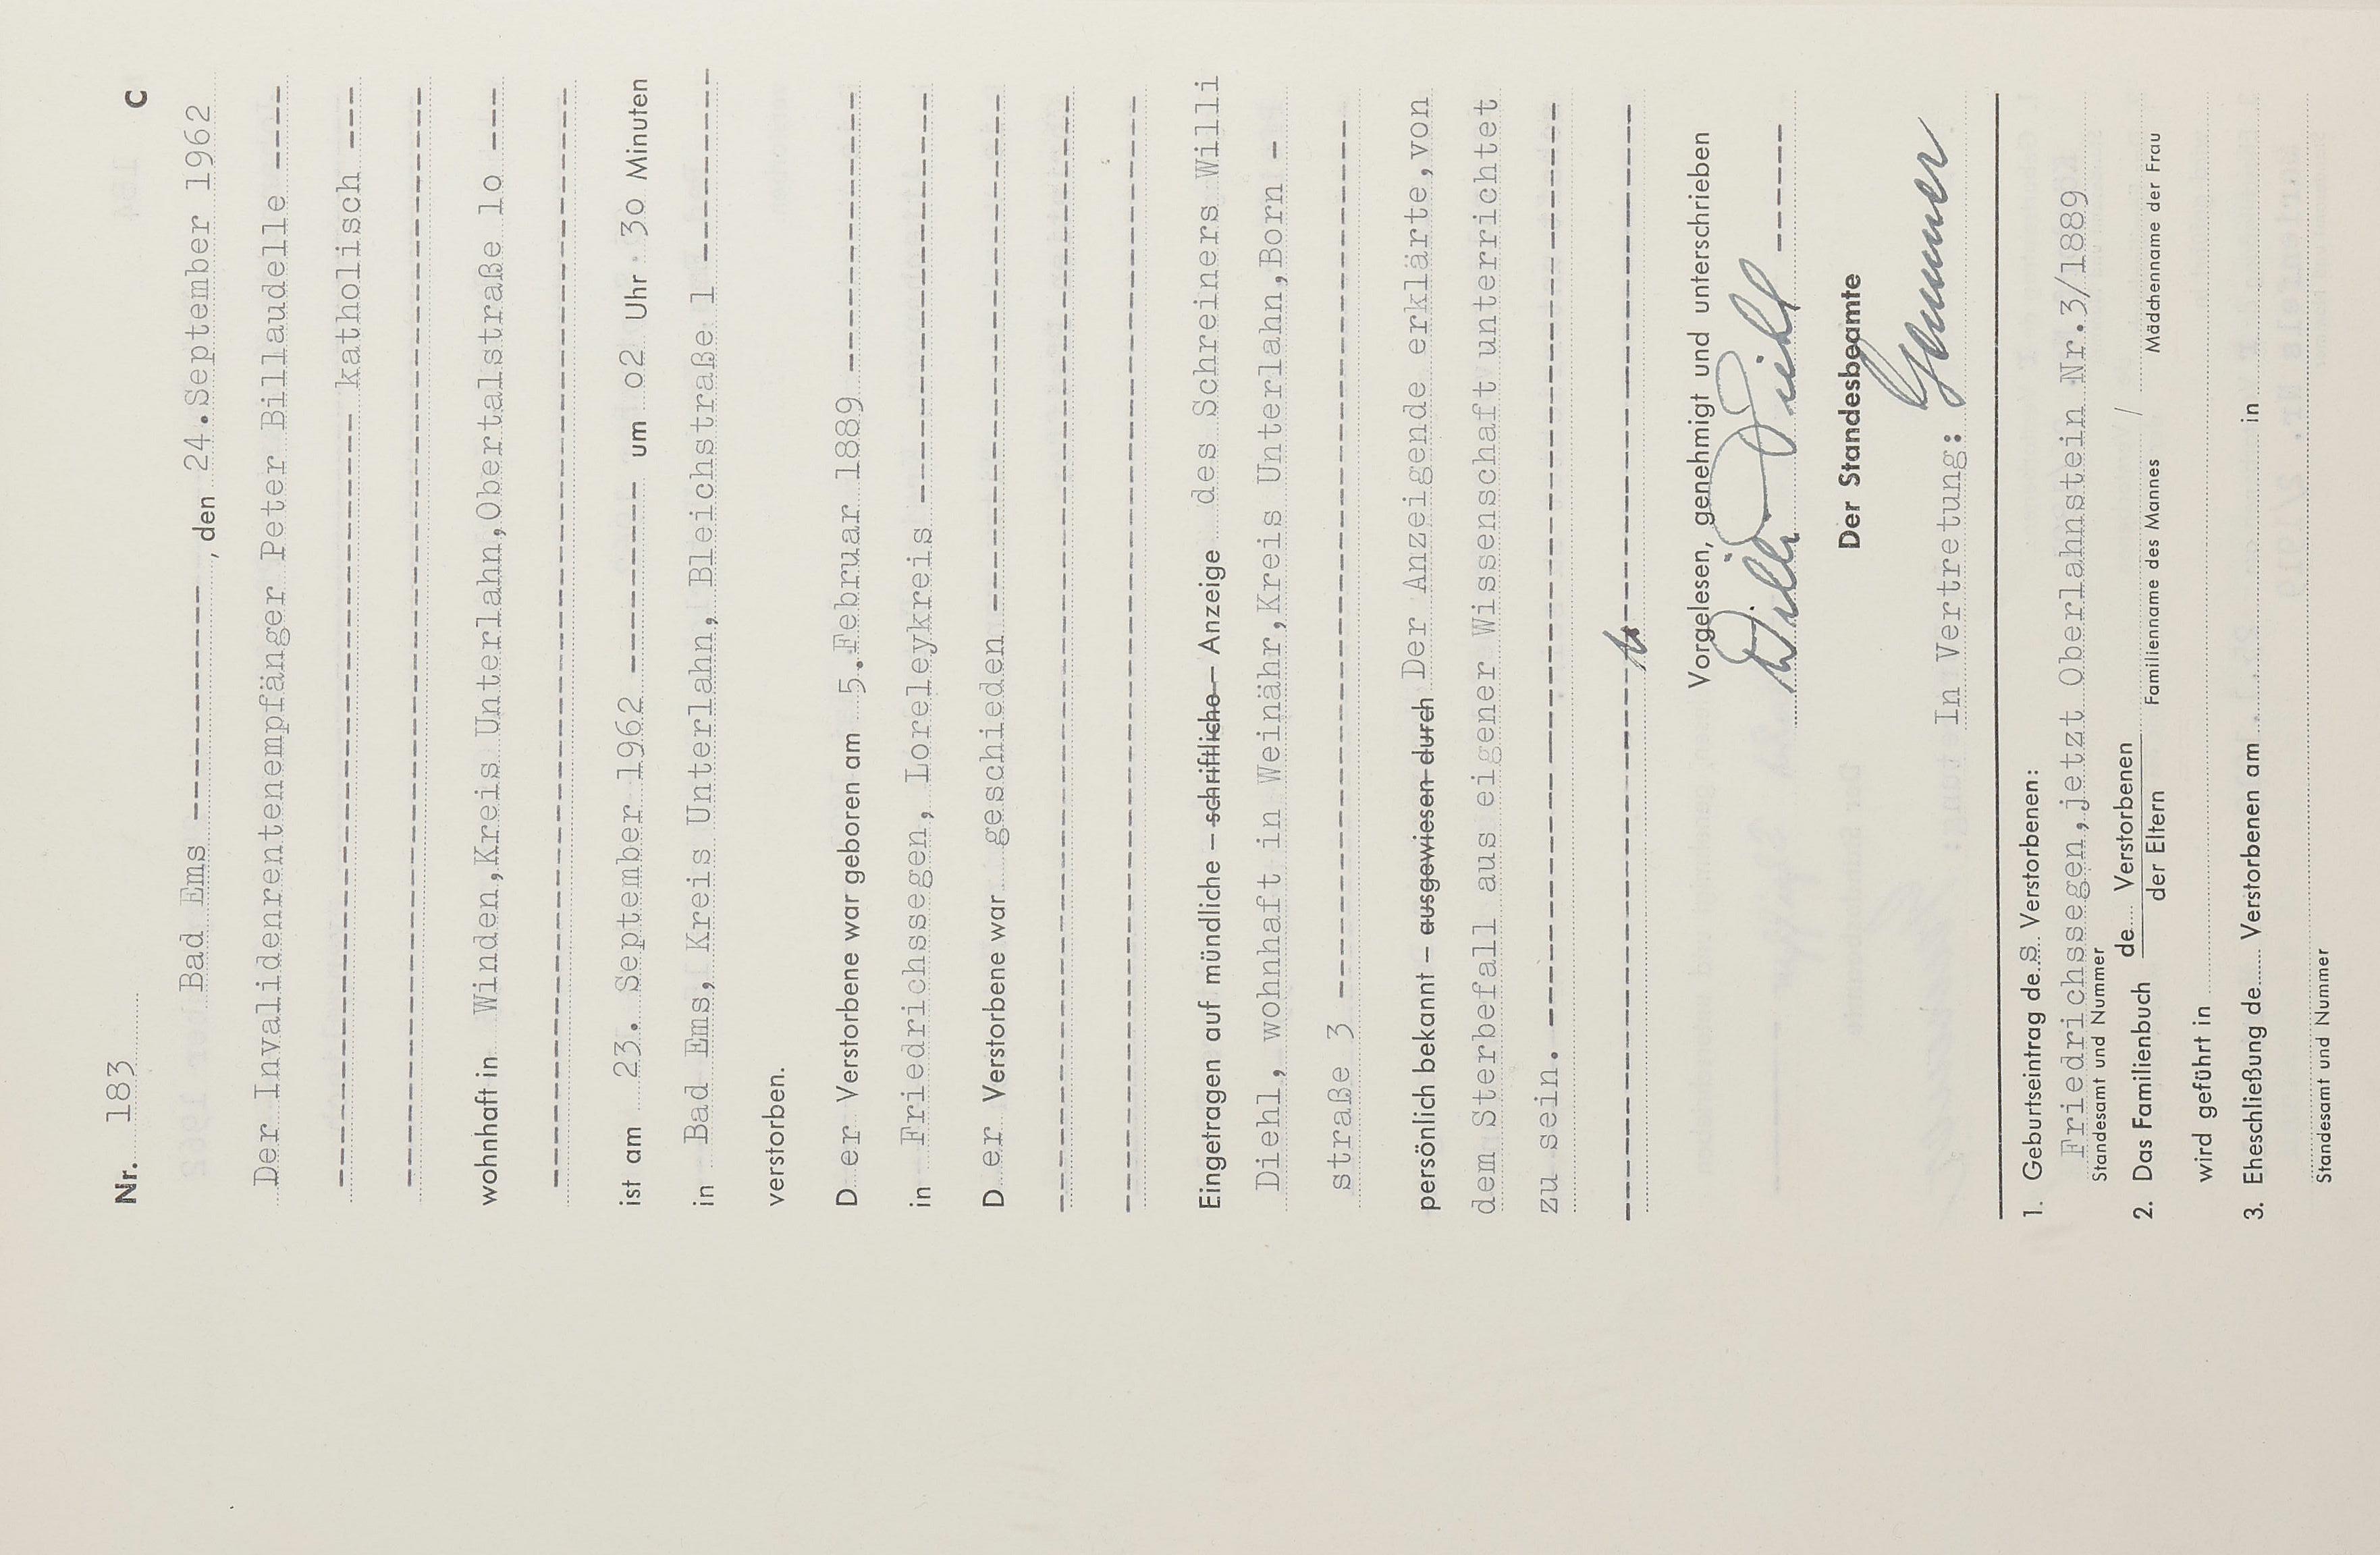 Nr. 183 C
Bad Ems ----------, den 24.September 1962
Der Invalidenrentenempfänger Peter Billaudelle ----
---------------------------------- katholisch ---
---------------------------------------------
wohnhaft in Winden,Kreis Unterlahn,Obertalstraße 1o ---
---------------------------------------------
ist am 23. September 1962 --------- um o2 Uhr 3o Minuten
in Bad Ems, Kreis Unterlahn, Bleichstraße 1 ---------
verstorben.
D er Verstorbene war geboren am 5.Februar 1889 ------------
in Friedrichssegen, Loreleykreis ------------------
D er Verstorbene war geschieden ----------------------
---------------------------------------------
---------------------------------------------
Eingetragen auf mündliche – schriftliche – Anzeige des Schreiners Willi
Diehl, wohnhaft in Weinähr,Kreis Unterlahn,Born -
straße 3 --------------------------------------
persönlich bekannt – ausgewiesen durch Der Anzeigende erklärte,von
dem Sterbefall aus eigener Wissenschaft unterrichtet
zu sein. ---------------------------------------
---------------------------------------------
Vorgelesen, genehmigt und unterschrieben
Willi Diehl ------
Der Standesbeamte
In Vertretung:
1. Geburtseintrag de s Verstorbenen:
Friedrichssegen,jetzt Oberlahnstein Nr.3/1889
Standesamt und Nummer
2. Das Familienbuch de Verstorbenen /
der Eltern Familienname des Mannes Mädchenname der Frau
wird geführt in
3. Eheschließung de Verstorbenen am in
Standesamt und Nummer